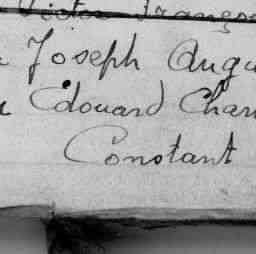 Victor François
Joseph Augu
Edouard Char
Constant